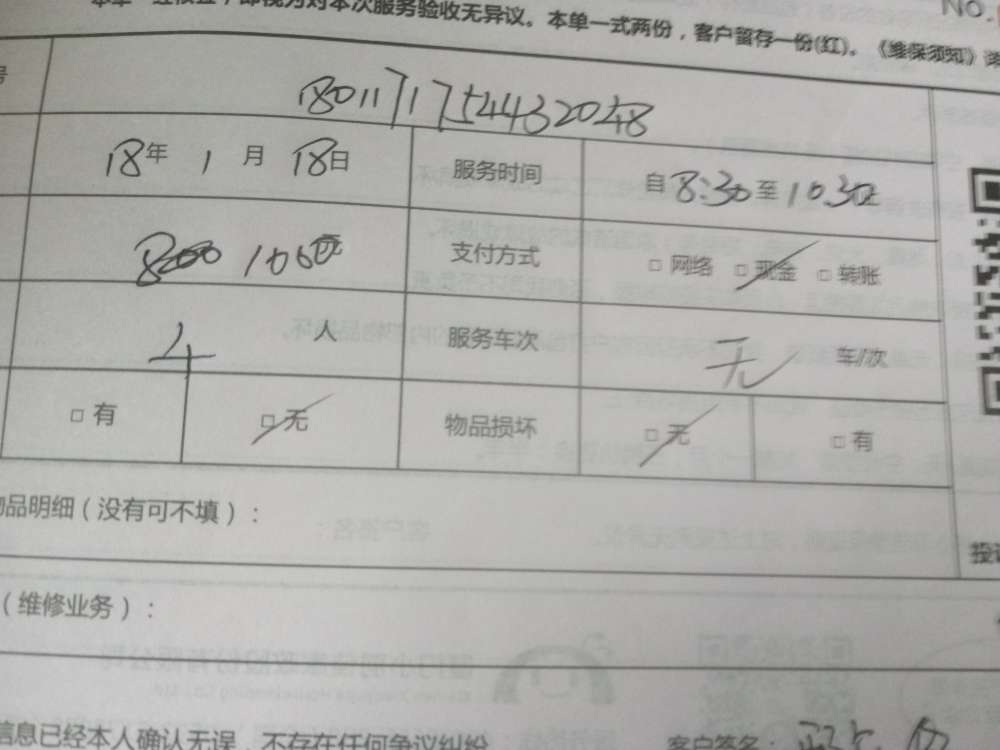 本单一经核立，即视为对本次服务验收无异议。本单一式两份，客户留存一份(红)。《维保须知》 No.
号 18011717544632048
18年 1 月 18日 服务时间 自8:30至10:30止
1000元 支付方式 □ 网络 □ 现金 □ 转账
4 人 服务车次 无 车/次
□ 有 □ 无 物品损坏 □ 无 □ 有
物品明细（没有可不填）：
（维修业务）：
信息已经本人确认无误，不存在任何争议纠纷 客户签名：